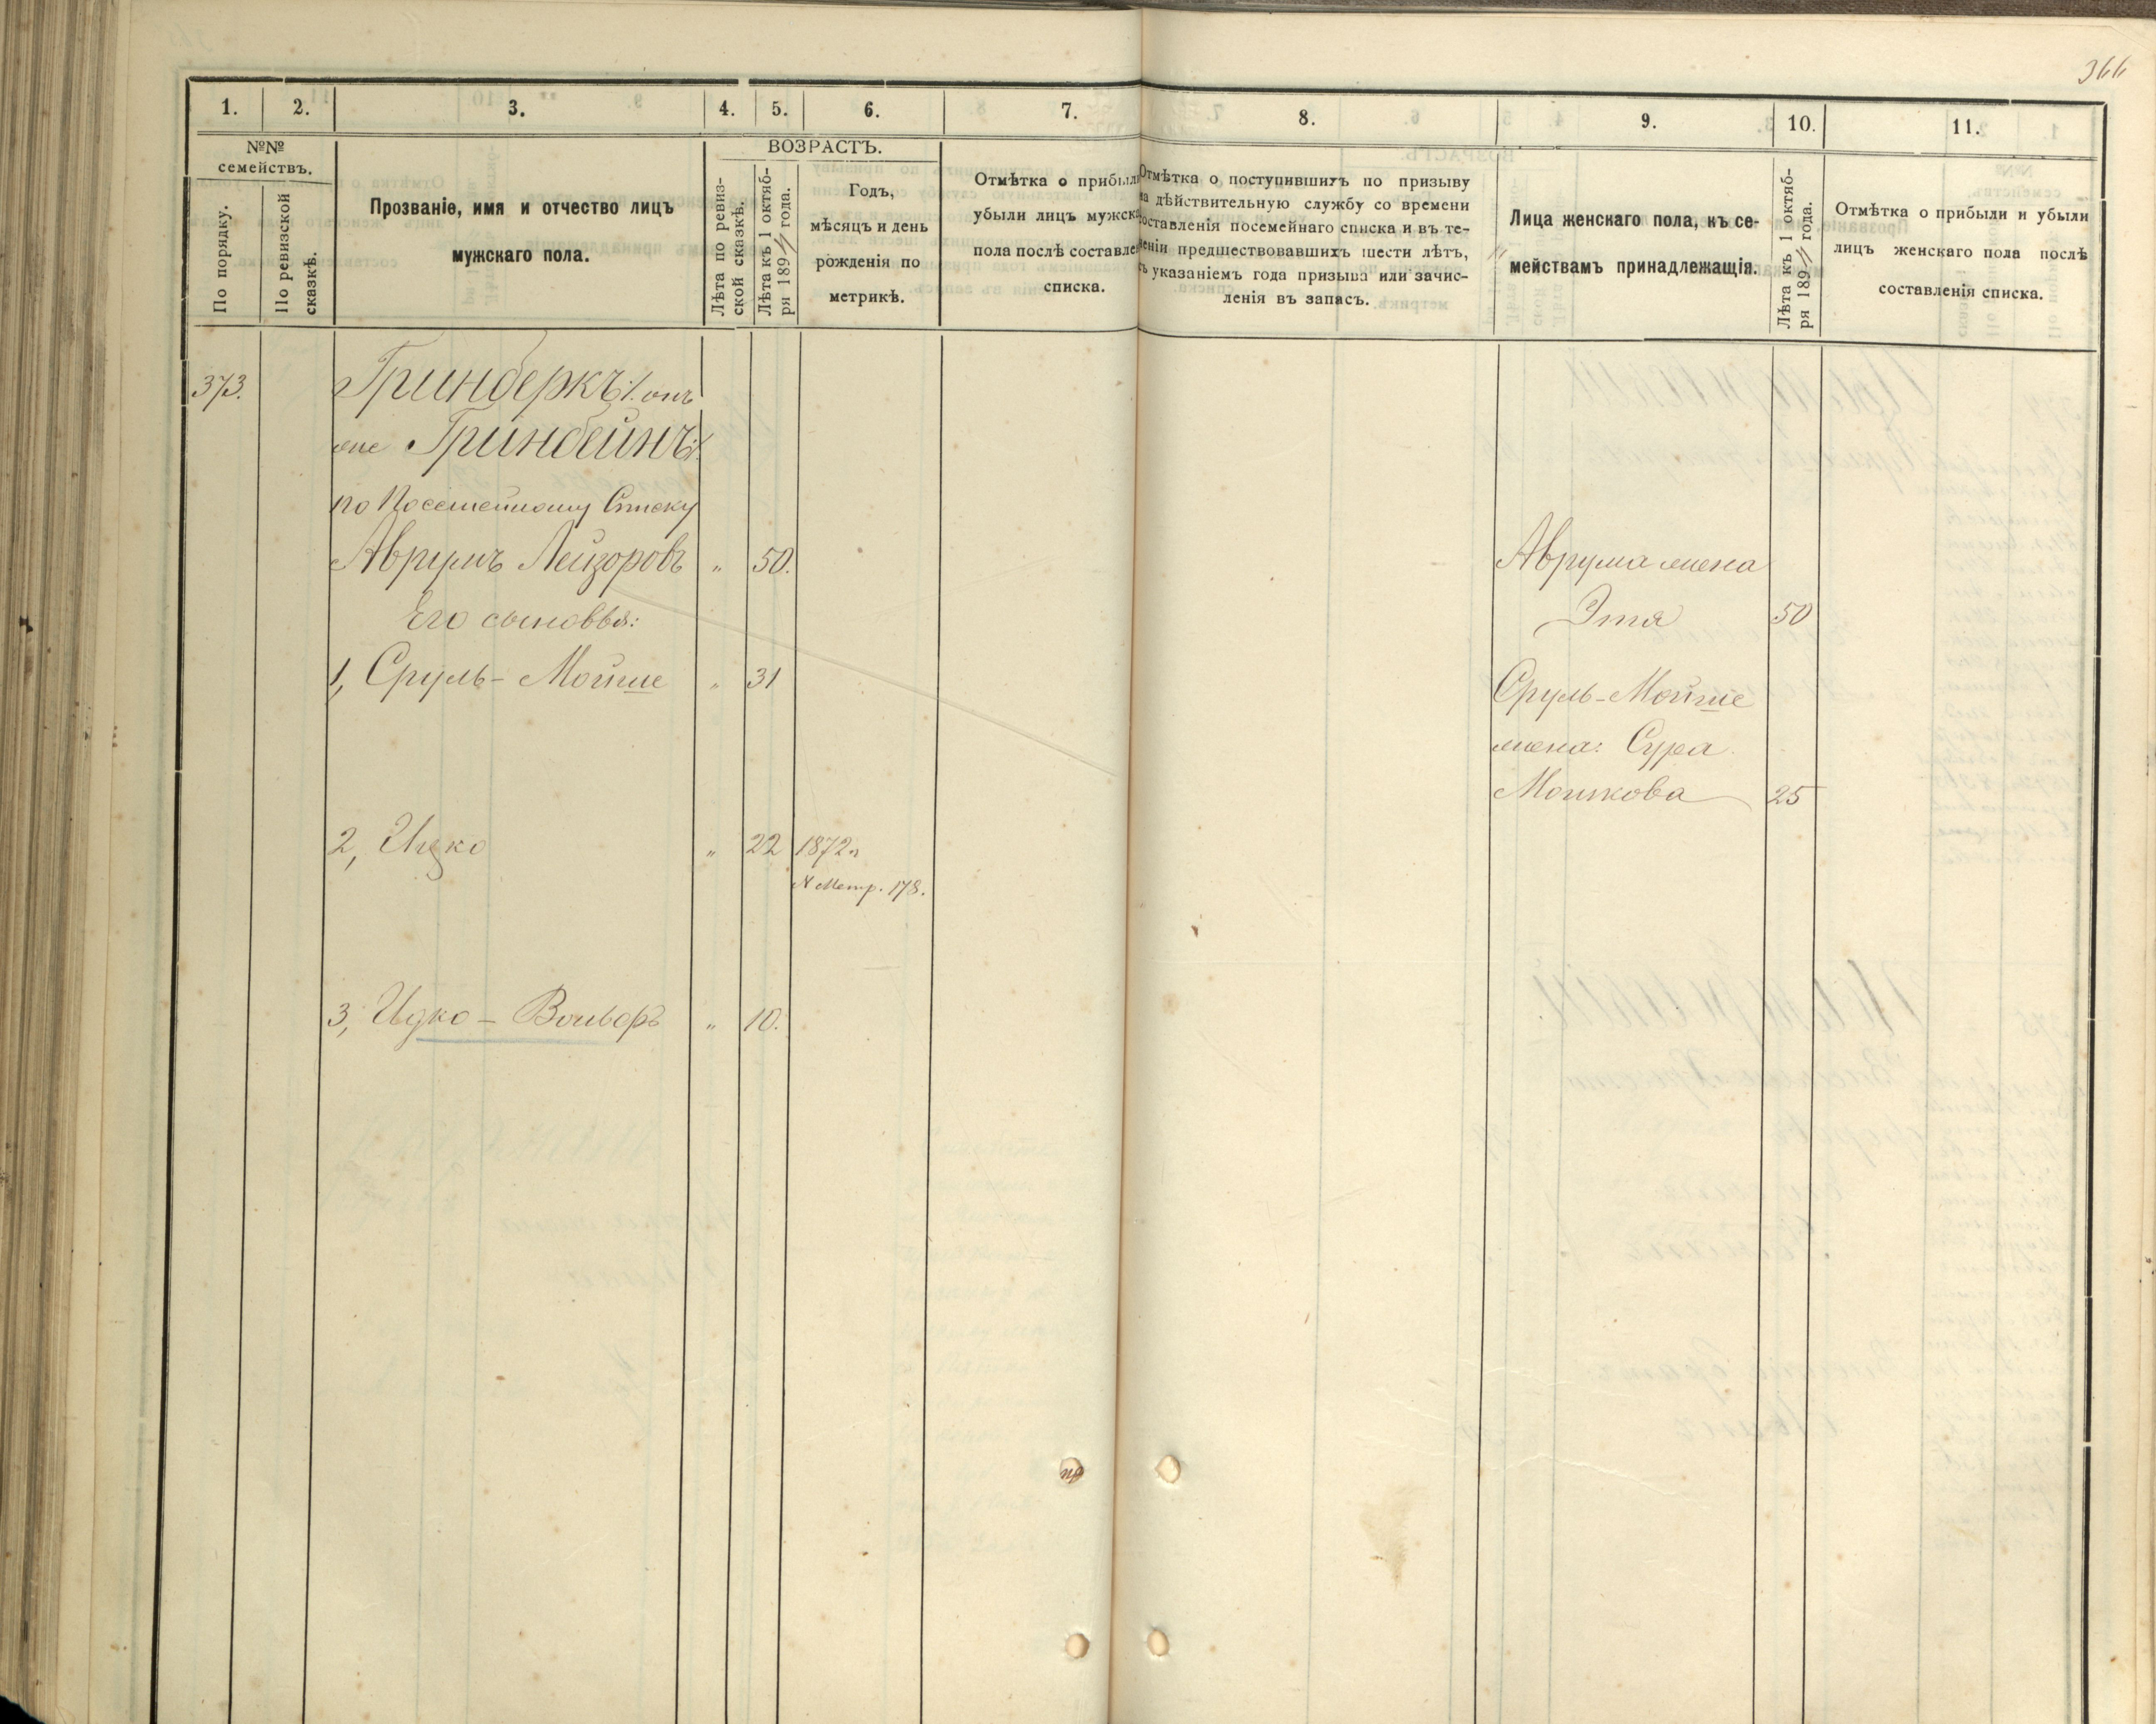 366
1. 2. 3. 4. 5. 6. 7. 8. 9. 10. 11.
№№ семействъ.
По порядку.
По ревизской сказкѣ.
Прозваніе, имя и отчество лицъ
мужскаго пола.
ВОЗРАСТЪ.
Лѣта по ревиз-
ской сказкѣ.
Лѣта къ 1 октяб-
ря 1894 года.
Годъ,
мѣсяцъ и день
рожденія по
метрикѣ.
Отмѣтка о прибыли
убыли лицъ мужска
пола послѣ составле
списка.
Отмѣтка о поступившихъ по призыву
на дѣйствительную службу со времени
составленія посемейнаго списка и въ те-
ченіи предшествовавшихъ шести лѣтъ,
съ указаніемъ года призыва или зачис-
ленія въ запасъ.
Лица женскаго пола, къ се-
мействамъ принадлежащія.
Лѣта къ 1 октяб-
ря 1894 года.
Отмѣтка о прибыли и убыли
лицъ женскаго пола послѣ
составленія списка.
373. Гринберкъ /: онъ
же Гринбейнъ :/
по Посемейному Списку
Аврумъ Лейзоровъ " 50. Аврума жена
Его сыновья: Этя 50
1, Сруль-Мойше " 31 Сруль-Мойше
жена: Сура
Мошкова 25
2, Ицко " 22 1872 г.
№ Метр. 178.
3, Идко-Вольфъ " 10.